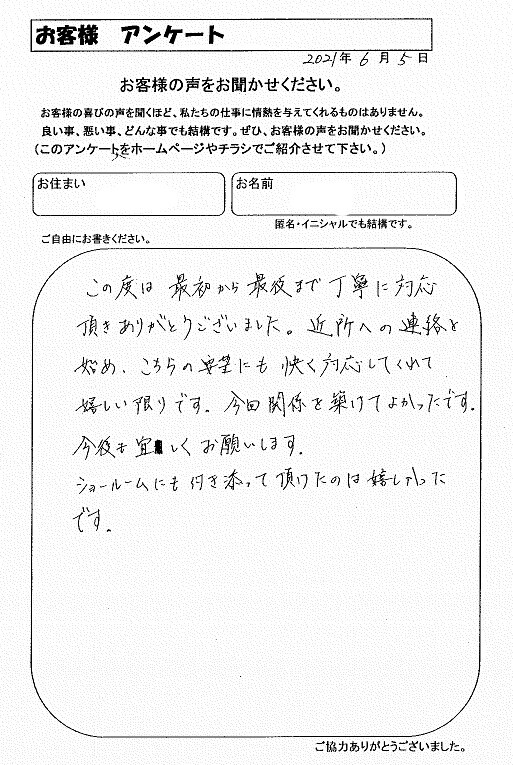 お客様 アンケート
2021年 6月 5日
お客様の声をお聞かせください。
お客様の喜びの声を聞くほど、私たちの仕事に情熱を与えてくれるものはありません。
良い事、悪い事、どんな事でも結構です。ぜひ、お客様の声をお聞かせください。
（このアンケートをホームページやチラシでご紹介させて下さい。）
お住まい
お名前
匿名・イニシャルでも結構です。
ご自由にお書きください。
この度は 最初から最後まで丁寧に対応
頂きありがとうございました。近所への連絡を
始め、こちらの要望にも 快く対応してくれて
嬉しい限りです。今回関係を築けてよかったです。
今後も宜しくお願いします。
ショールームにも付き添って頂けたのは嬉しかった
です。
ご協力ありがとうございました。